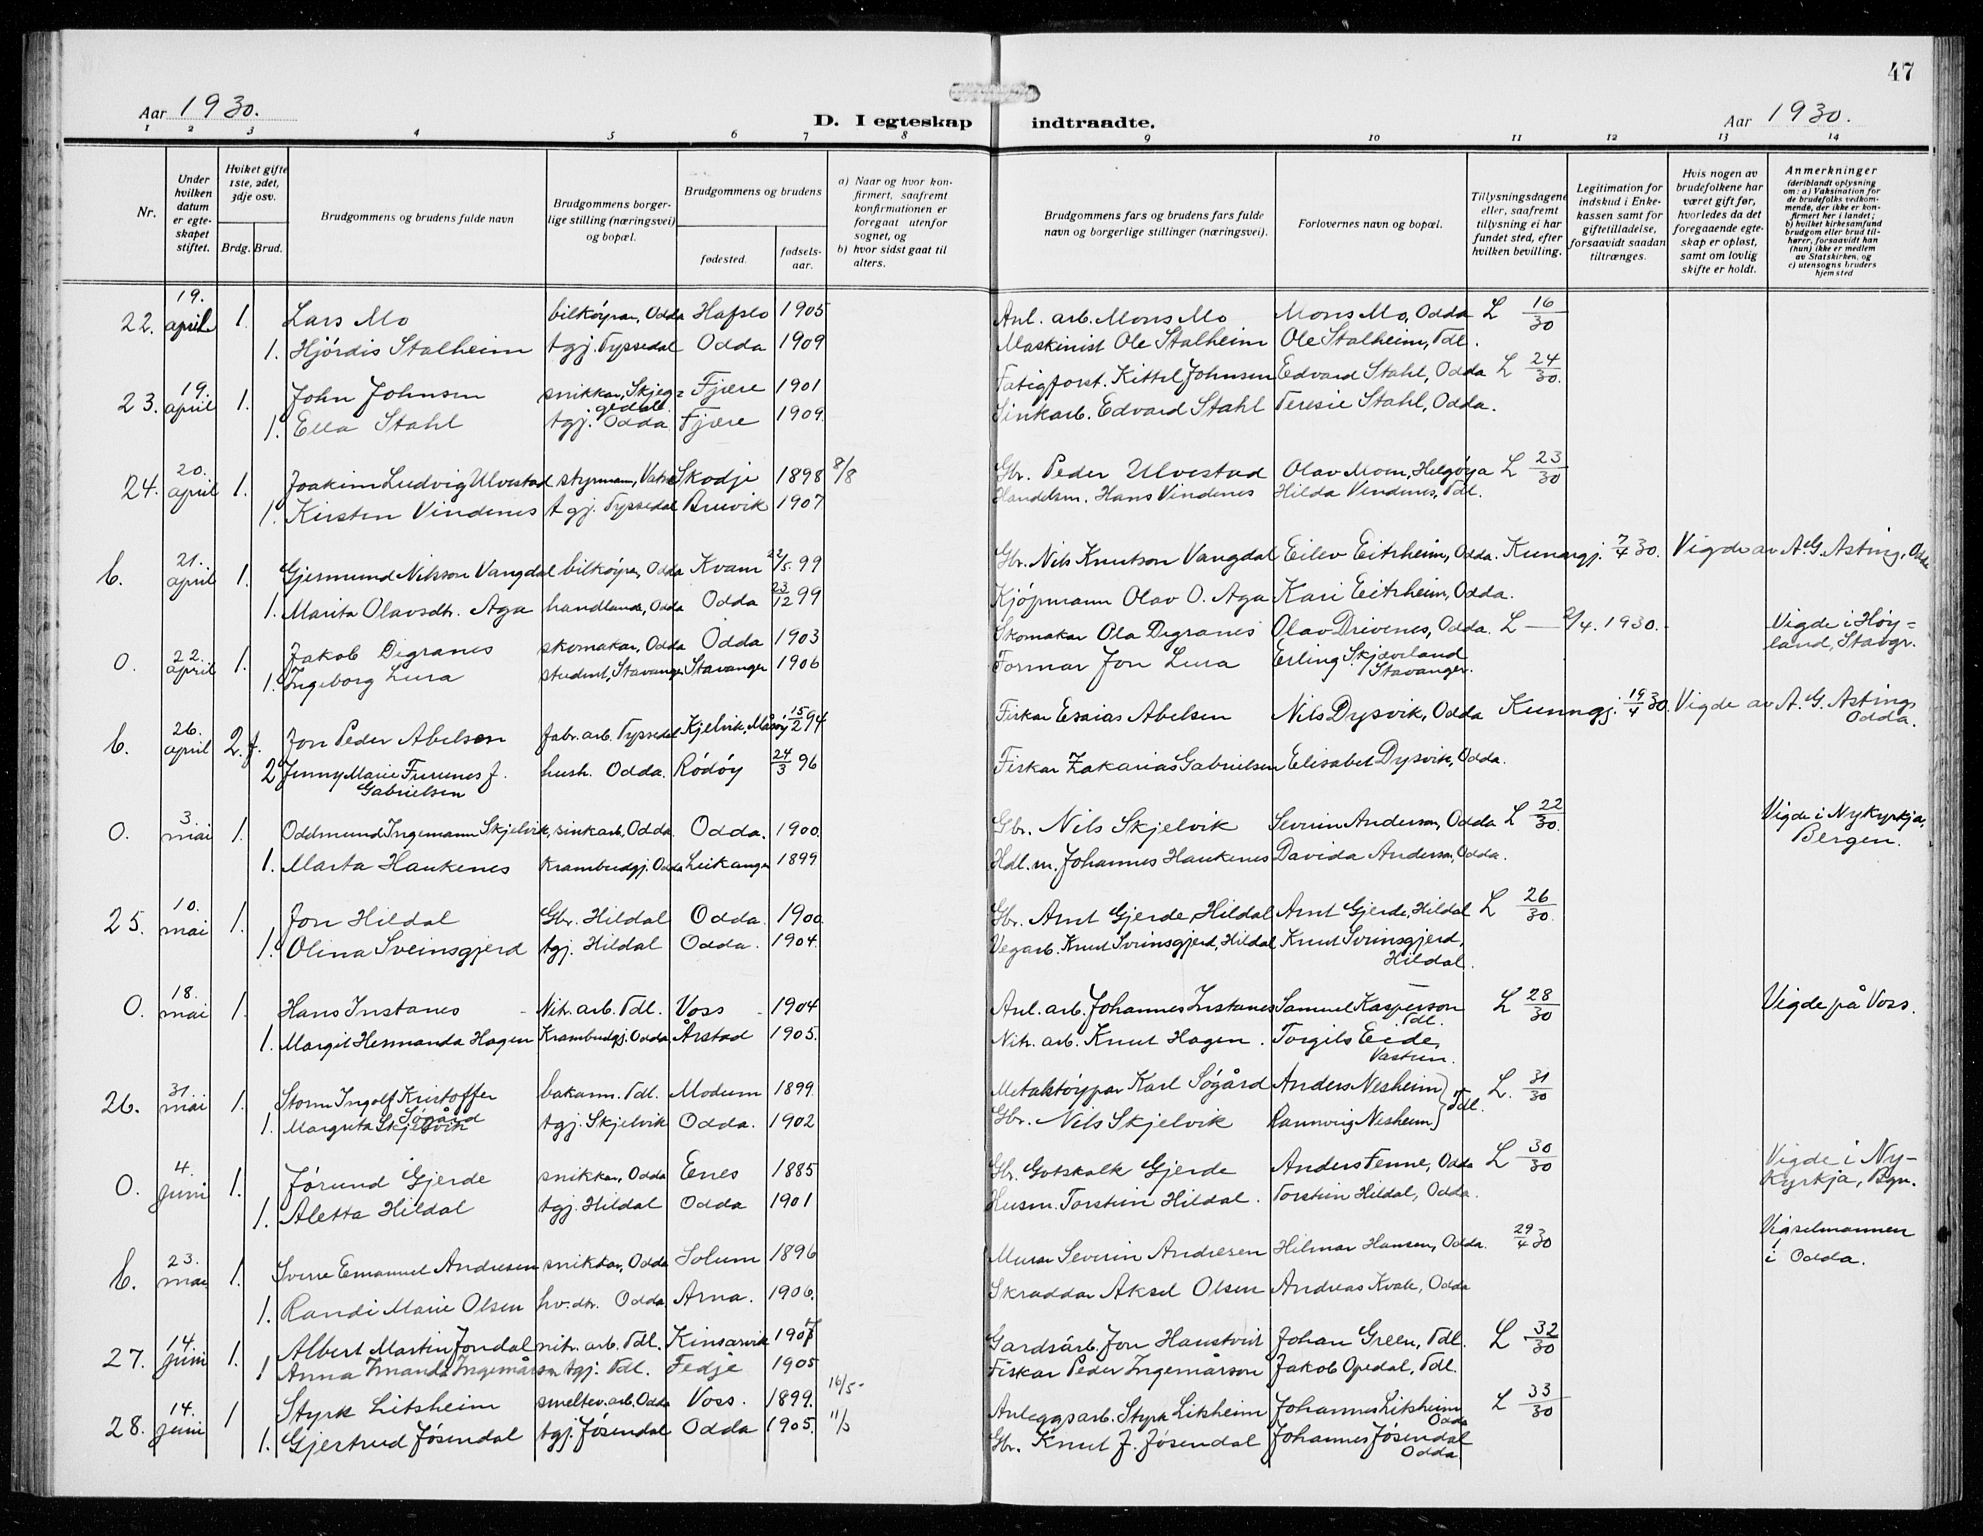 47
Aar 1930.
D. I egteskap indtraadte.
Aar 1930.
1 2 3 4 5 6 7 8 9 10 11 12 13 14
Nr.
Under hvilken datum er egteskapet stiftet.
Hviket gifte 1ste, 2det, 3dje osv.
Brdg. Brud.
Brudgommens og brudens fulde navn
Brudgommens borgerlige stilling (næringsvei) og bopæl.
Brudgommens og brudens
fødested.
fødselsaar.
a) Naar og hvor konfirmert, saafremt konfirmationen er foregaat utenfor sognet, og
b) hvor sidst gaat til alters.
Brudgommens fars og brudens fars fulde navn og borgerlige stillinger (næringsvei).
Forlovernes navn og bopæl.
Tillysningsdagene eller, saafremt tillysning ei har fundet sted, efter hvilken bevilling.
Legitimation for indskud i Enkekassen samt for giftetilladelse, forsaavidt saadan tiltrænges.
Hvis nogen av brudefolkene har været gift før, hvorledes da det foregaaende egteskap er opløst, samt om lovlig skifte er holdt.
Anmerkninger (deriblandt oplysning om: a) Vaksination for de brudefolks vedkommende, der ikke er konfirmert her i landet; b) hvilket kirkesamfund brudgom eller brud tilhører, forsaavidt han (hun) ikke er medlem av Statskirken, og c) utensogns bruders hjemsted
22. 19. april 1. Lars Mo bilkøyrar, Odda Hafslo 1905 Anl. arb. Mons Mo Mons Mo, Odda L 16/30
1. Hjørdis Stalheim tgj. Tyssedal Odda 1909 Maskinist Ole Stalheim Ole Stalheim, Tdl.
23. 19. april 1. John Johnsen snikkar, Skjeggedal Fjære 1901 Fatigforst. Kittel Johnsen Edvard Stahl, Odda L 24/30.
1. Ella Stahl tgj. Odda Fjære 1909 Sinkarb. Edvard Stahl Teresie Stahl, Odda.
24. 20. april 1. Joakim Ludvig Ulvestad styrmann, Skodje 1898 8/8 Gbr. Peder Ulvestad Olav Moen, Helgøya L 23/30
1. Kirsten Vindenes tgj. Tyssedal Bruvik 1907 Handelsm. Hans Vindenes Hilda Vindenes, Tdl.
b. 21. april 1. Gjermund Nilsson Vangdal bilkøyrar, Odda Kvam 22/5 99 Gbr. Nils Knutson Vangdal Eilev Eitrheim, Odda. Kunngj. 7/4 30. Vigde av A. G. Asting, Odda
1. Marita Olavsdtr. Aga handlande, Odda Odda 23/12 99 Kjøpmann Olav O. Aga Kari Eitrheim, Odda.
O. 22. april 1. Jakob Digranes skomakar, Odda Odda 1903 Skomakar Ola Digranes Olav Drivenes, Odda. L — 2/4. 1930. Vigde i Høyland, Stavgr.
1. Ingeborg Lura student, Stavanger Stavanger 1906 Formar Jon Lura Erling Skjæveland Stavanger.
b. 26. april 2. f. Jon Peder Abelsen fabr. arb. Tyssedal Kjelvik, Måsøy 15/2 94 Fiskar Esaias Abelsen Nils Dysvik, Odda Kunngj. 19/4 30. Vigde av A. G. Asting Odda.
2 Jenny Marie Furenes f. Gabrielsen hush. Odda. Rødøy 24/3 96 Fiskar Zakarias Gabrielsen Elisabet Dysvik, Odda.
O. 3. mai 1. Oddmund Ingemann Skjelvik, sinkarb, Odda. Odda. 1900. Gbr. Nils Skjelvik Severin Anderson, Odda L 22/30. Vigde i Nykyrkja, Bergen.
1. Marta Haukenes Krambudgj. Odda Leikanger 1899 Hdl. m. Johannes Haukenes Davida Anderson, Odda.
25. 10. mai 1. Jon Hildal Gbr. Hildal Odda. 1900. Gbr. Arnt Gjerde, Hildal Arnt Gjerde, Hildal L 26/30.
1. Olina Sveinsgjerd tgj. Hildal Odda. 1904. Vegarb. Knut Sveinsgjerd, Hildal Knut Sveinsgjerd, Hildal.
O. 18. mai 1. Hans Instanes Nitr. arb. Tdl. Voss 1904 Anl. arb. Johannes Instanes Samuel Kasperson Tdl. L 28/30 Vigde på Voss.
1. Margit Hermanda Hagen Krambudgj. Odda Årstad 1905. Nitr. arb. Knut Hagen. Torgils Eide,
26. 31. mai 1. Storm Ingolf Kristoffer Søgård bakarm. Tdl. Modum 1899. Metaltøypar Karl Søgård Anders Nesheim L. 31/30
1. Margreta Skjelvik tgj. Skjelvik Odda. 1902 Gbr. Nils Skjelvik Rannveig Nesheim } Tdl.
O. 4. juni 1. Jørund Gjerde snikkar, Odda Enes 1885 Gbr. Gotskalk Gjerde Anders Tenne, Odda L 30/30 Vigde i Nykyrkja, Bgn.
1. Aletta Hildal tgj. Hildal Odda 1901 Husm. Torstein Hildal. Torstein Hildal, Odda.
b. 23. mai 1. Sverre Emanuel Andresen snikkar, Odda Solum 1896 Murar Severin Andresen Hilmar Hansen, Odda. 29/4 30 Vigselmannen i Odda.
1. Randi Marie Olsen hv. dtr. Odda Arna. 1906. Skraddar Aksel Olsen Andreas Kvale, Odda
27. 14. juni 1. Albert Martin Jondal nitr. arb. Tdl. Kinsarvik 1907 Gardsarb. Jon Haustveit Johan Green, Tdl. L 32/30
1 Anna Amanda Ingemårson tgj. Tdl. Fedje 1905 Fiskar Peder Ingemårson Jakob Opedal, Tdl.
28. 14. juni 1 Styrk Litsheim smeltev. arb. Odda Voss. 1899. 16/5 Anleggsarb. Styrk Litsheim Johannes Litsheim Odda L 33/30
1. Gjertrud Jøsendal tgj. Jøsendal Odda 1905. 11/5 Gbr. Knut J. Jøsendal Johannes Jøsendal Odda.